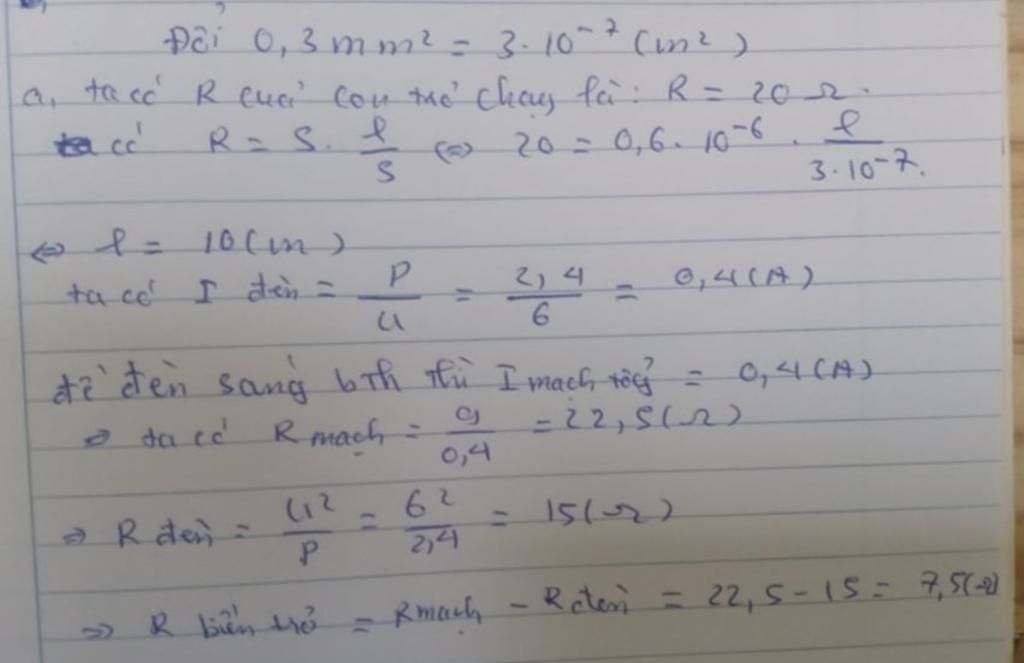 Đổi 0,3 mm² = 3.10⁻⁷ (m²)
a, ta có R của con trở chạy là: R = 20 Ω.
ta có R = S. l/S ⇔ 20 = 0,6. 10⁻⁶ . l/3.10⁻⁷.
⇔ l = 10 (m)
ta có I đèn = P/U = 2,4/6 = 0,4 (A)
để đèn sáng bth thì I mạch tổng = 0,4 (A)
⇒ ta có R mạch = 9/0,4 = 22,5 (Ω)
⇒ R đèn = U²/P = 6²/2,4 = 15 (Ω)
⇒ R biến trở = R mạch - R đèn = 22,5 - 15 = 7,5 (Ω)